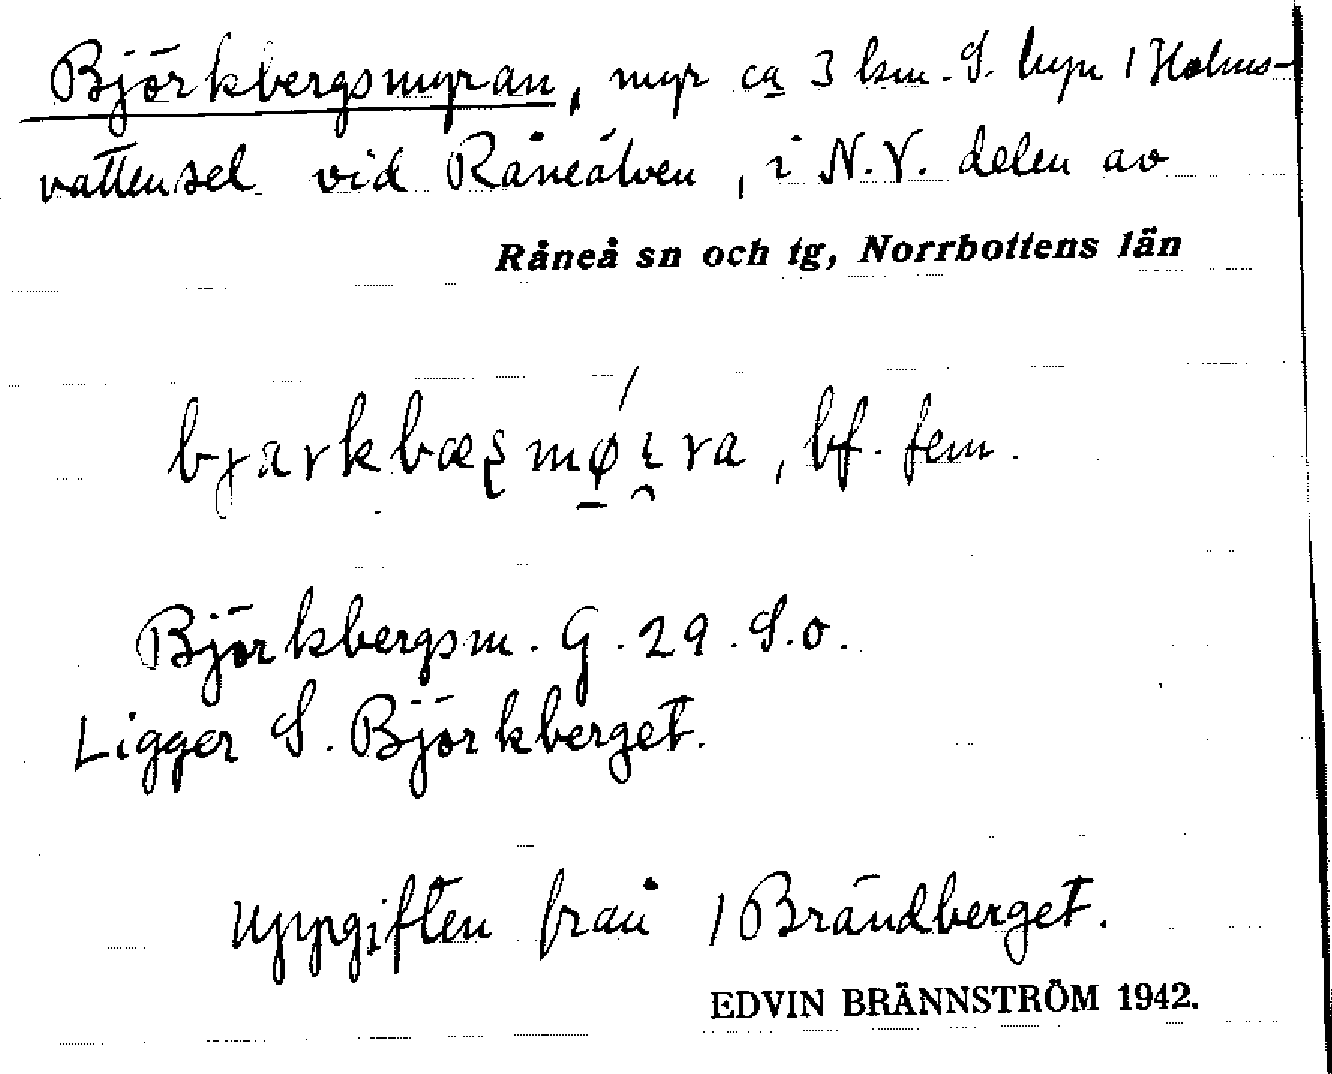 Björkbergsmyran, myr ca 3 km. S. byn / Holms-
vattensel vid Råneälven, i N.V. delen av
Råneå sn och tg, Norrbottens län
bjarkbæʂmǿi̯ra, bf. fem.
Björkbergsm. G. 29. S.o.
Ligger S. Björkberget.
Uppgiften från / Brändberget.
EDVIN BRÄNNSTRÖM 1942.